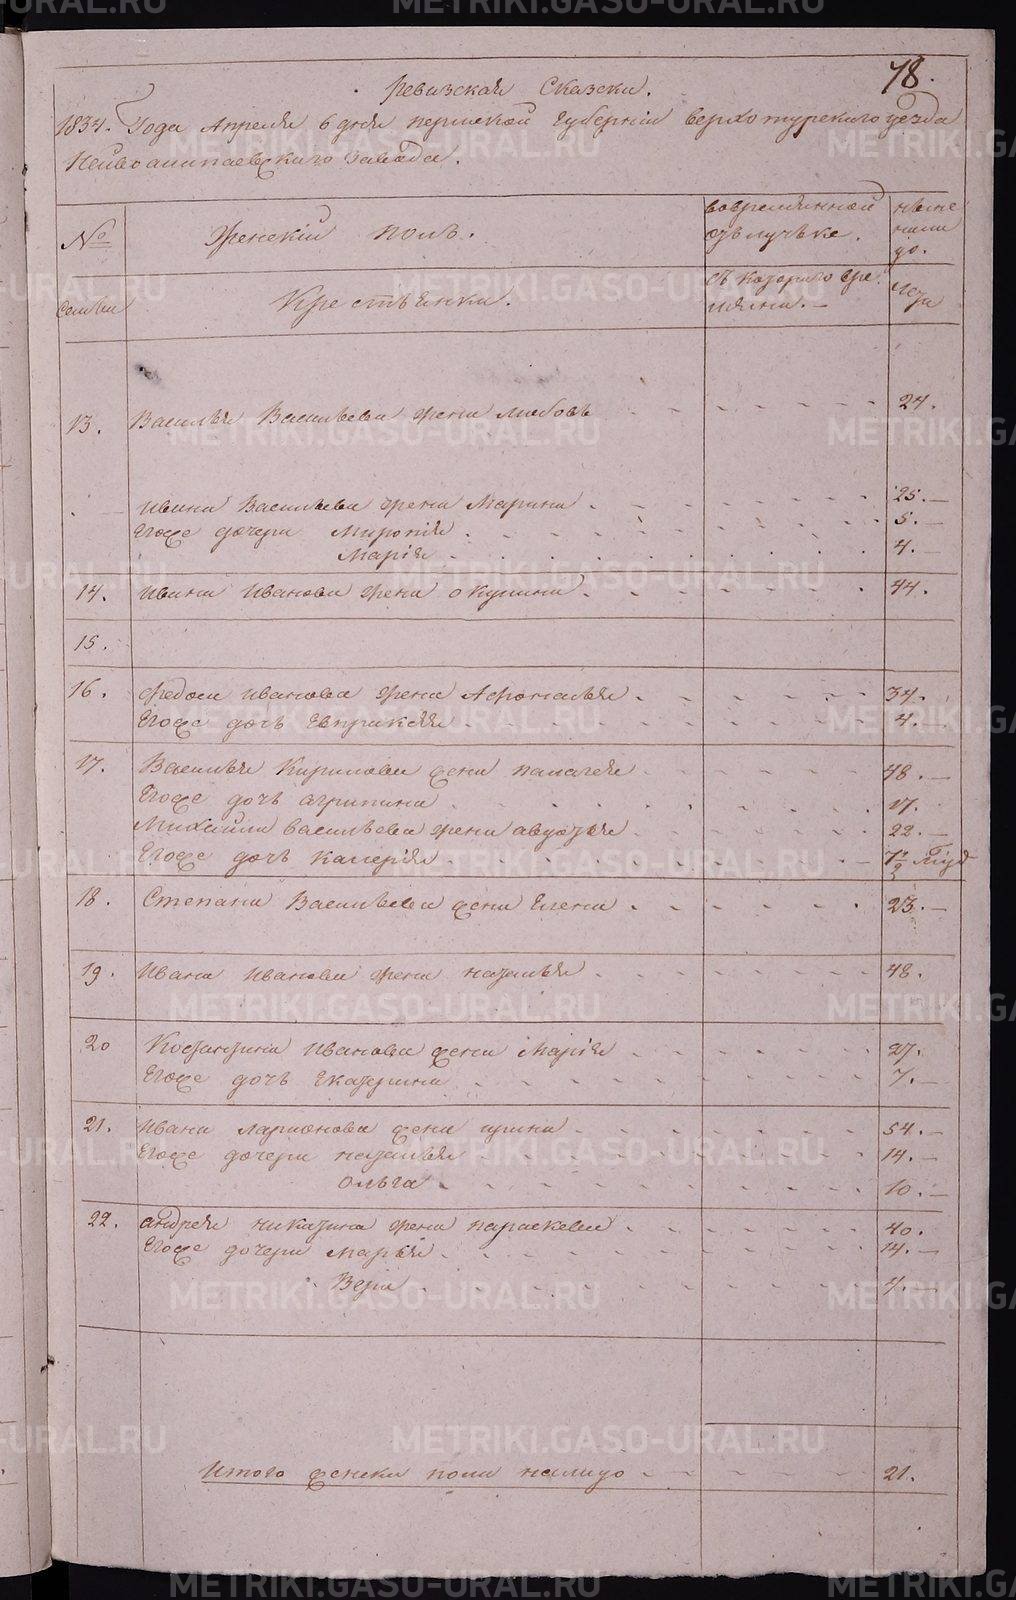 78.
Ревизская Сказска.
1834. Года Апреля 6 дня пермской Губернии верхотурского уезда
Нейвоалапаевского завода.
№ Женский полъ. вовременной отълучъке. ныне нали цо.
Семьи Крестьянки. съ которого вре мяни. Лета
13. Василья Васильева жена любовь 24.
Ивана Васильева жена Марина 25.
Егоже дочери Миропия 5.
Мария 4.
14. Ивана Иванова жена окулина 44.
15.
16. Федота иванова жена Афонасья 34.
Егоже дочь Евпраксия 4.
17. Василья Кирилова жена палагея 48.
Егоже дочь агрипина 17.
Михаила васильева жена авдотья 22.
Егоже дочь Калерия 1/2 Года
18. Степана Васильева жена Елена 23.
19. Ивана Иванова жена наталья 48.
20 Костантина Иванова жена Мария 27.
Егоже дочь Екатерина 7.
21. Ивана ларионова жена ирина 54.
Егоже дочери наталья 14.
Ольга 10.
22. андрея никитина жена параскева 40.
Егоже дочери Марья 14.
Вера 7.
Итого женска пола налицо 21.
METRIKI.GASO-URAL.RU